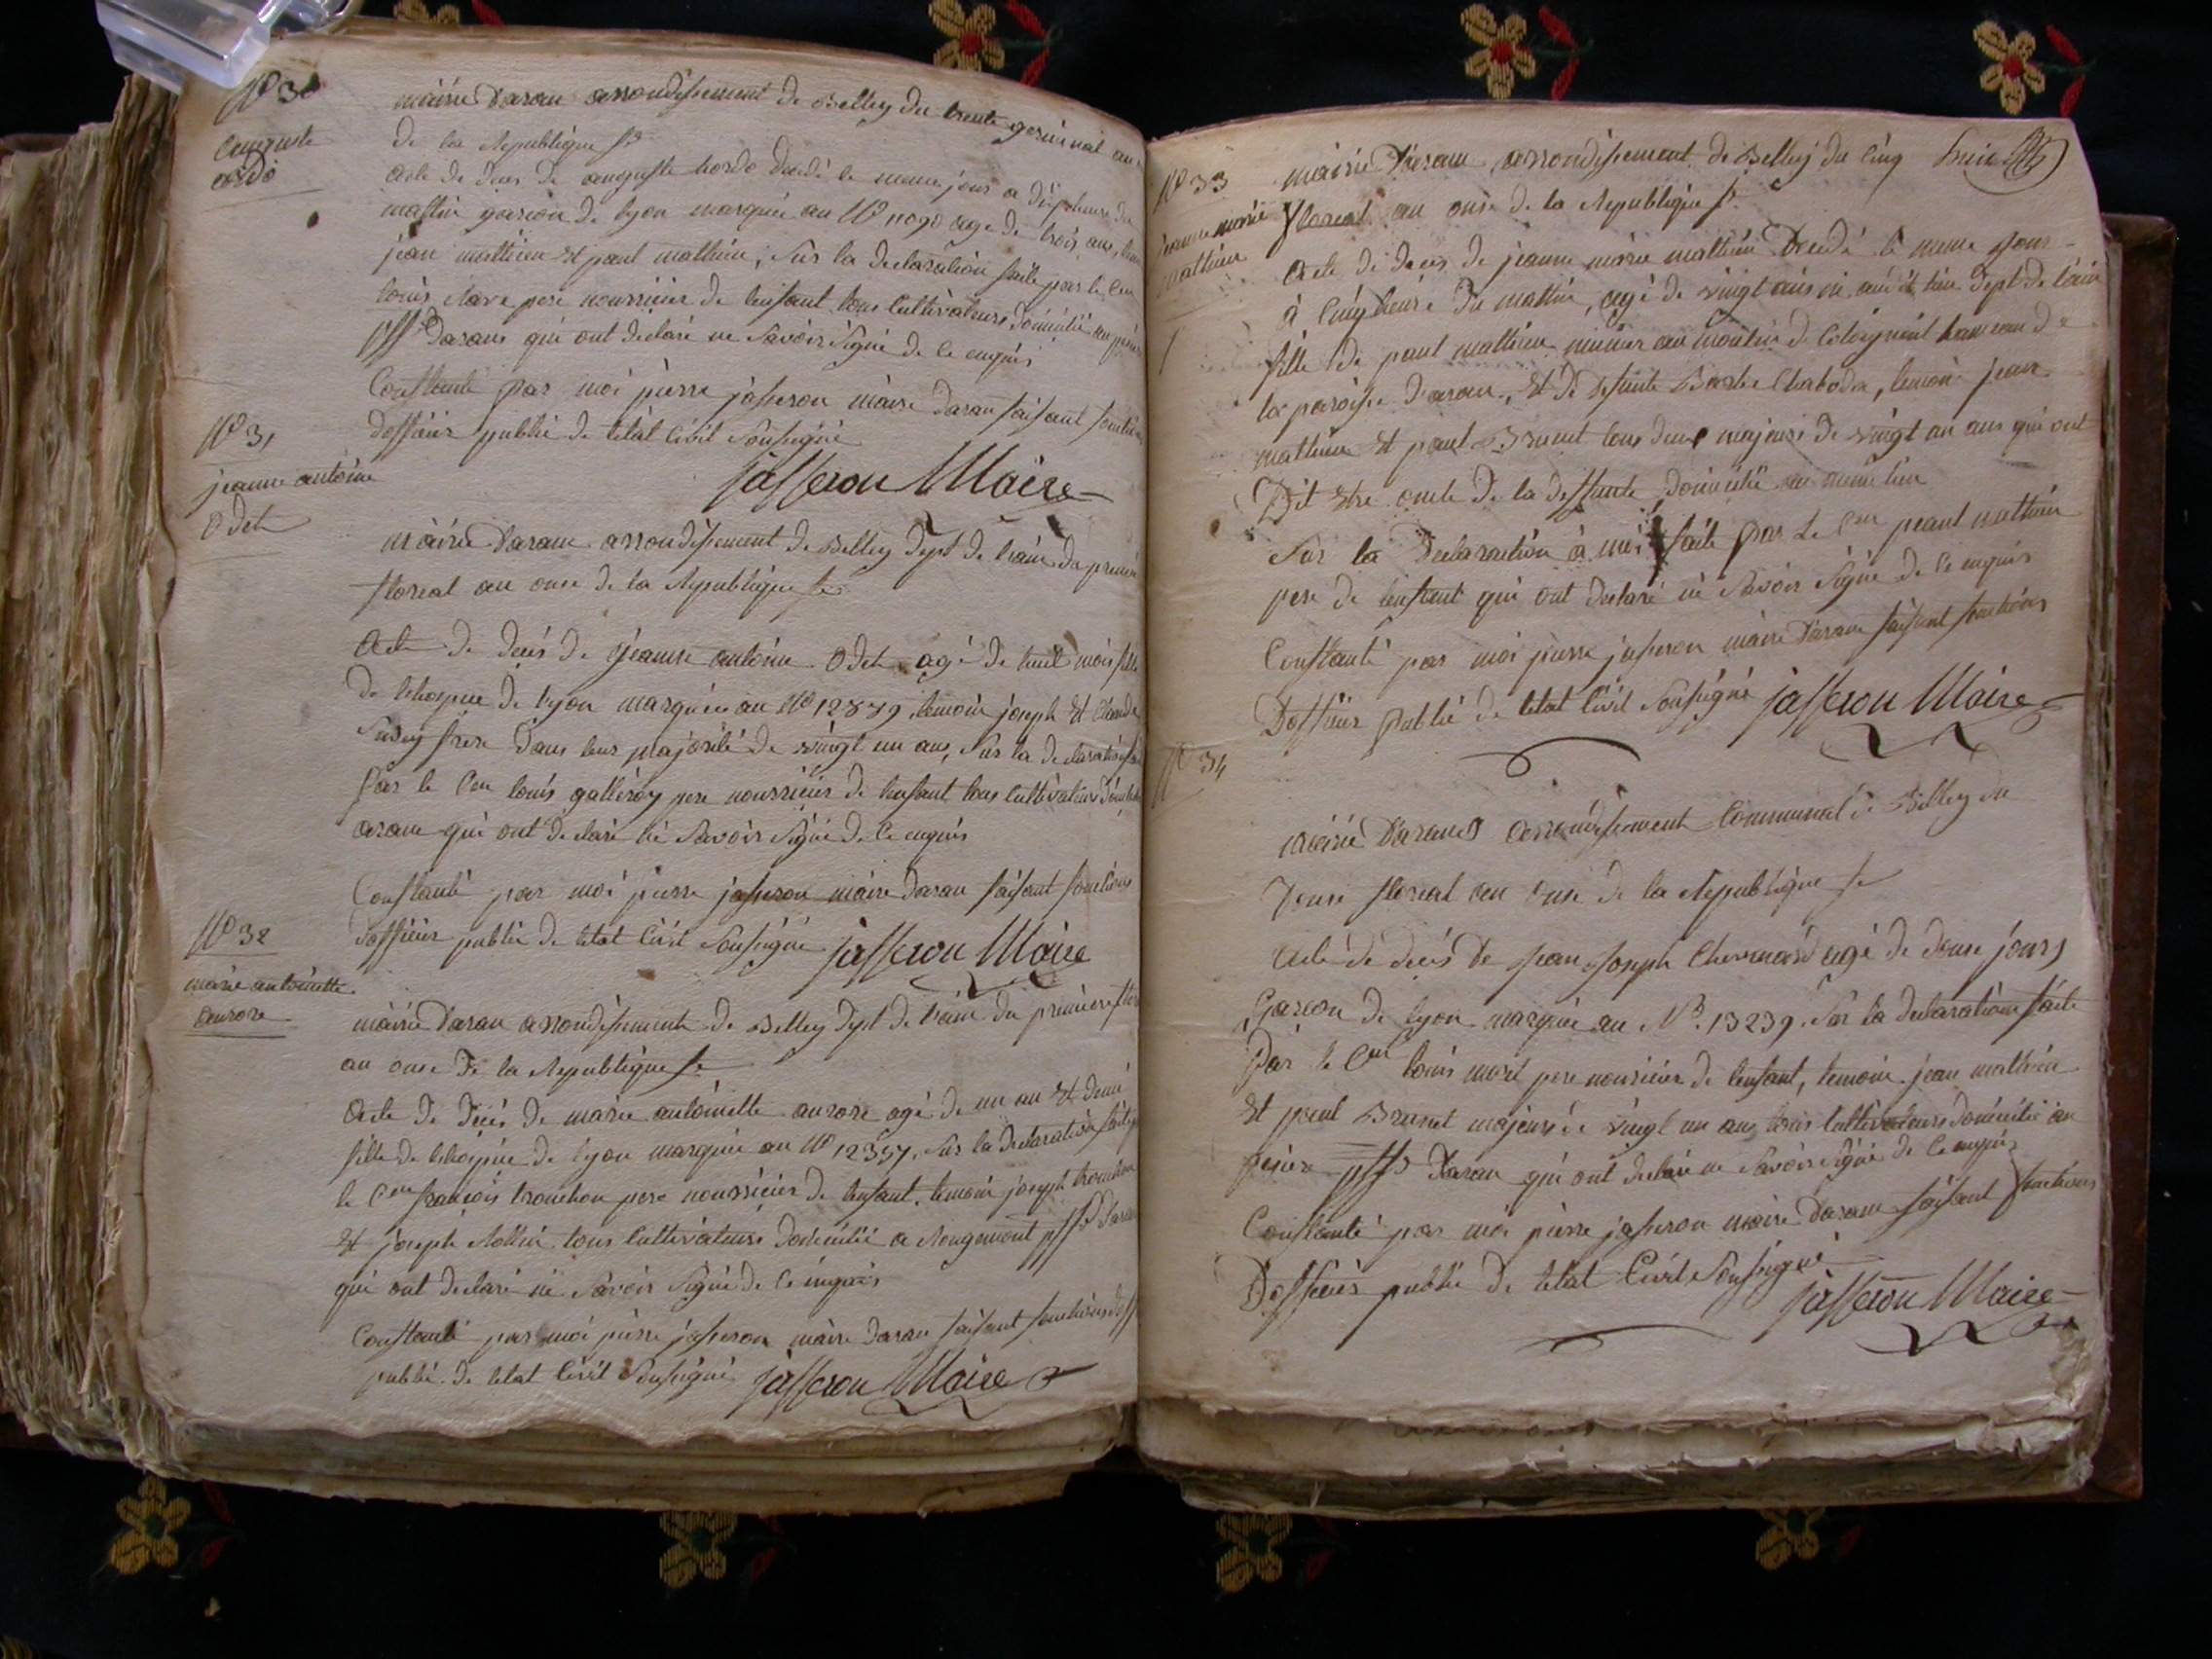 N° 30
auguste
ordo
mairie Daran arrondissement de Belley du trente germinal an
de la Republique fr
Acte de deces de auguste hordo decedé le meme jour a dix heures du
mattin garcon de lyon marquée au N° 11090 age de trois ans,
jean mathieu et paul mathieu, sur la declaration faite par le Cen
louis pere nourricier de lenfant tous cultivateurs domicilié au
psse Darans qui ont declaré ne savoir signé de ce enquis
Constaté par moi pierre jasseron maire daran faisant fonction
dofficier public de letat civil soussigné
jasseron Maire
N° 31
jeanne antoine
Odet
mairie Daranc arrondissement de Belley dept de lain du premier
floreal an onze de la Republique fr
Acte de deces de jeanne antoine Odet agé de huit mois fille
de lhospice de lyon marquée au N° 12879 temoin joseph et Claude
frere dans leur majorité de vingt un ans, sur la declaration
par le Cen louis galleroy pere nourricier de lenfant tous cultivateurs
arane qui ont declaré ne savoir signé de ce enquis
Constaté par moi pierre jasseron maire daran faisant fonctions
dofficier public de letat civil soussigné jasseron Maire
N° 32
marie antoinette
aurore
mairie Daran arrondissement de Belley dept de lain du premier
an onze de la Republique fr
Acte de deces de marie antoinette aurore agé de un an et demi
fille de lhospice de lyon marquée au N° 12357, sur la declaration faite
le Cen francois tronchon pere nourricier de lenfant, temoin joseph tronchon
et joseph tous cultivateurs domicilié a Rougemont psse daran
qui ont declaré ne savoir signé de ce enquis
Constaté par moi pierre jasseron maire daran faisant fonctions
public de letat civil soussigné jasseron Maire
N° 33
jeanne marie
mathieu
mairie Daran arrondissement de Belley du cinq huit
floreal an onze de la Republique fr
Acte de deces de jeanne marie mathieu decedé le meme jour
à cinq heure du mattin, agé de vingt ans né audit lieu dept de lain
fille de paul mathieu munier au moulin de hameau de
la paroisse daran, et de defunte Chabodon, temoin jean
mathieu et paul Brunet tous deux majeurs de vingt un ans qui ont
Dit etre oncle de la deffunte domicilié au meme lieu
sur la Declaration à moi faite par le Cen peaul mathieu
pere de lenfant qui ont declaré ne savoir signé de ce enquis
Constaté par moi pierre jasseron maire Daran faisant fonctions
Dofficier public de letat civil soussigné jasseron Maire
N° 34
mairie Daranc arrondissement Communal de Belley du
floreal an onze de la Republique fr
Acte de deces de jean joseph agé de douze jours
garcon de lyon marquée au N° 13239. sur la declaration faite
par le Cen louis pere nourricier de lenfant, temoin jean mathieu
et paul Brunet majeurs de vingt un ans tous cultivateurs domicilié au
psse Daran qui ont declaré ne savoir signé de ce enquis
Constaté par moi pierre jasseron maire Daran faisant fonctions
Dofficier public de letat Civil soussigné
jasseron Maire